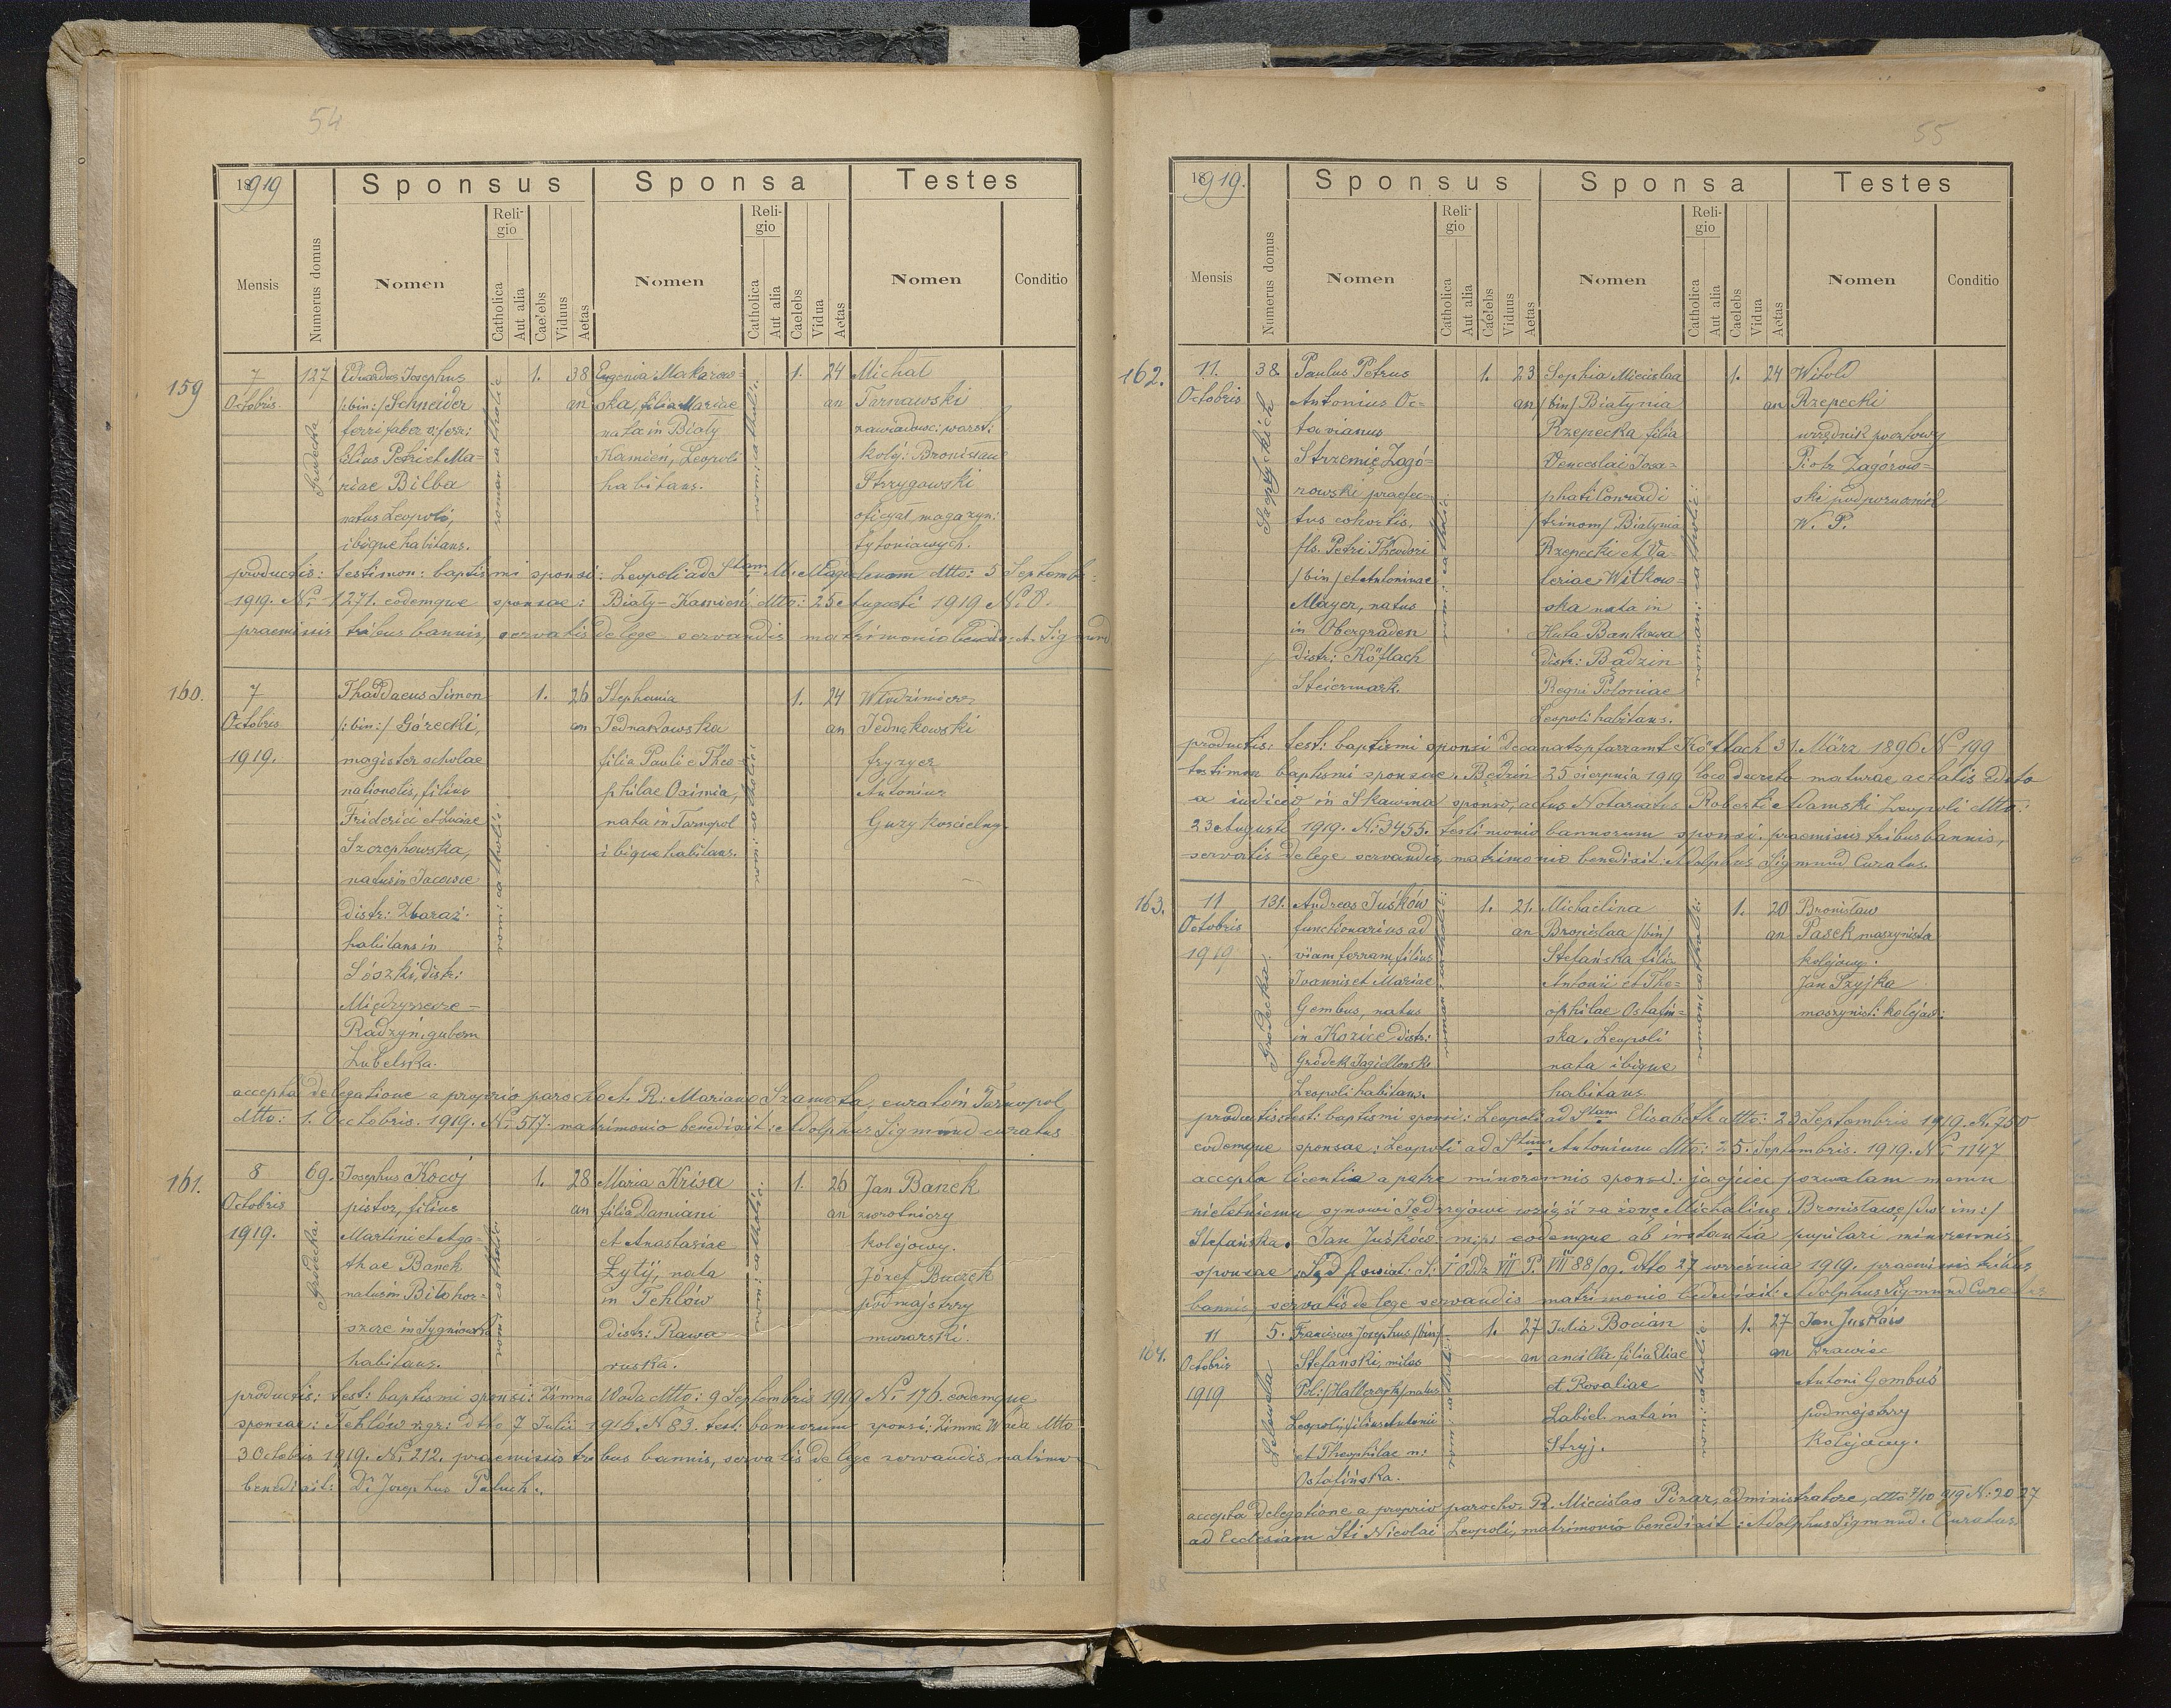 54
1919
Sponsus
Sponsa
Testes
Mensis
Numerus domus
Nomen
Religio
Catholica
Aut alia
Caelebs
Viduus
Aetas
Nomen
Religio
Catholica
Aut alia
Caelebs
Vidua
Aetas
Nomen
Conditio
159
7
Octobris
127
Gródecka
Eduardus Josephus
/:bin:/ Schneider
ferri faber
filius Petri et Ma=
riae Bilba
natus Leopoli,
ibique habitans.
1.
38
an
Eugenia Makarow=
ska, filia Mariae
nata in Biały
Kamień, Leopoli
habitans.
1.
24
an
Michał
Tarnawski
zawiadowc: warst:
kolej: Bronisław
Strzygowski
oficyał magazyn:
tytoniowych.
productis: testimon: baptismi sponsi: Leopoli ad Stam M. Magdalenam dtto: 5 Septemb:
1919. No 1271. eodemque sponsae: Biały-Kamień dtto: 25 Augusti 1919 No.
praemissis tribus bannis, servatis de lege servandis matrimonio A. Sigmund
160.
7
Octobris
1919.
Thaddaeus Simon
/:bin:/ Górecki,
magister scholae
nationalis, filius
Friderici et Luciae
Szczepkowska,
natus in Jacowce
distr: Zbaraż.
habitans in
distr:
Radzyń, gubern
Lubelska.
rom: catholic:
1.
26
an
Stephania
Jednakowska
filia Pauli e Theo=
philae Oximia,
nata in Tarnopol
ibique habitans.
1.
24
an
Włodzimierz
Jednakowski
fryzyer
Antonius
Guzy kościelny.
accepta delegatione a proprio parocho A. R: Mariano Szamota, curato in Tarnopol
dtto: 1. Octobris. 1919. No 517. matrimonio benedixit: Adolphus Sigmund curatus
161.
8
Octobris
1919.
69.
Gródecka.
Josephus Krocoj
pistor, filius
Martini et Aga=
thae Banek
natus in Biłohor=
szcze in Sygniówka
habitans.
1.
28
an
Maria Krisa
filia Damiani
et Anastasiae
Zytij, nata
in Tehlów
distr: Rawa
ruska.
rom: catholic:
1.
26
an
Jan Banek
zwrotniczy
kolejowy.
Józef Buczek
podmajstrzy
murarski.
productis: test: baptismi sponsi: Zimna Woda dtto: 9 Septembris 1919 No 176. eodemque
sponsae: Tehlów dtto 7 Julii 1915. No 83. test: bannorum sponsi: Zimna Woda dtto
3 Octobris 1919. No 212. praemissis tribus bannis, servatis de lege servandis matrimo
benedixit: Dr Josephus Paluch.
55
1919.
Sponsus
Sponsa
Testes
Mensis
Numerus domus
Nomen
Religio
Catholica
Aut alia
Caelebs
Viduus
Aetas
Nomen
Religio
Catholica
Aut alia
Caelebs
Vidua
Aetas
Nomen
Conditio
162.
11.
Octobris
38.
Szeptyckich
Paulus Petrus
Antonius Oc=
tavianus
Strzemię Zagó=
rowski praefec=
tus cohortis,
fls. Petri Theodori
/bin/ et Antoninae
Mayer, natus
in Obergraden
distr: Köflach
Steiermark.
rom: catholic:
1.
23
an
Sophia Miecislaa
/bin/ Białynia
Rzepecka filia
Venceslai Josa=
phati Conradi
/trinom/ Białynia
Rzepecki et Va=
leriae Witkow=
ska nata in
Huta Bankowa
distr: Bądzin
Regni Poloniae
Leopoli habitans.
romano: catholic:
1.
24
an
Witold
Rzepecki
urzędnik pocztowy
Piotr Zagórow=
ski podporucznik
W. P.
productis: test: baptismi sponsi Decanatspfarramt Köflach 31. März 1896 No 199
testimon baptismi sponsae. Będzin 25 sierpnia 1919 loco decreto maturae aetatis edito
a iudicio in Skawina sponso, actus Notariatus Roberti Adamski Leopoli dtto:
23 Augusti 1919. No: 3455. testimonio bannorum sponsi. praemissis tribus bannis,
servatis de lege servandis matrimonio benedixit: Adolphus Sigmund Curatus
163.
11
Octobris
1919
131.
Gródecka.
Andreas Juśków
functionarius ad
viam ferram, filius
Joannis et Mariae
Gembus, natus
in Kozice distr:
Gródek Jagielloński
Leopoli habitans.
1.
21.
an
Michaelina
Bronislaa /bin/
Stefańska filia
Antonii et The=
ophilae Ostafin=
ska. Leopoli
nata ibique
habitans
1.
20
an
Bronisław
Pasek maszynista
kolejowy.
Jan Szyjka
maszynist: kolejow:
productis: test: baptismi sponsi: Leopoli ad Stam Elisabeth dtto: 23 Septembris 1919. No 750
eodemque sponsae: Leopoli ad Stum Antonium dtto: 25. Septembris. 1919. No 1147
accepta licentia a patre minorennis sponsi: ja ojciec pozwalam memu
nieletniemu synowi Jędrzejowi wziąść za żonę Michalinę Bronisławę /dw: im:/
Stefańska. Jan Juśków mp: eodemque ab instantia pupilari minorennis
sponsae: Sąd powiat: S. I oddz VII P. VII 88/09. dtto 27 września 1919. praemissis tribus
bannis, servatis de lege servandis matrimonio benedixit: Adolphus Sigmund Curatus
164.
11
Octobris
1919
5.
Franciscus Josephus /bin/
Stefanski, miles
Pol: /Hallerczyk/ natus
Leopoli, filius Antonii
et Theophilae n:
Ostafińska.
1.
27
an
Julia Bocian
ancilla filia Eliae
et Rosaliae
Labiel. nata in
Stryj.
rom: catholic:
1.
27
an
Jan Juśków
krawiec
Antoni Gembuś
podmajstrzy
kolejowy.
accepta delegatione a proprio parocho. R. Miecislao Pizar, administratore, dtto 7/10 919 No: 2027
ad Ecclesiam Sti Nicolai Leopoli, matrimonio benedixit: Adolphus Sigmund. Curatus.